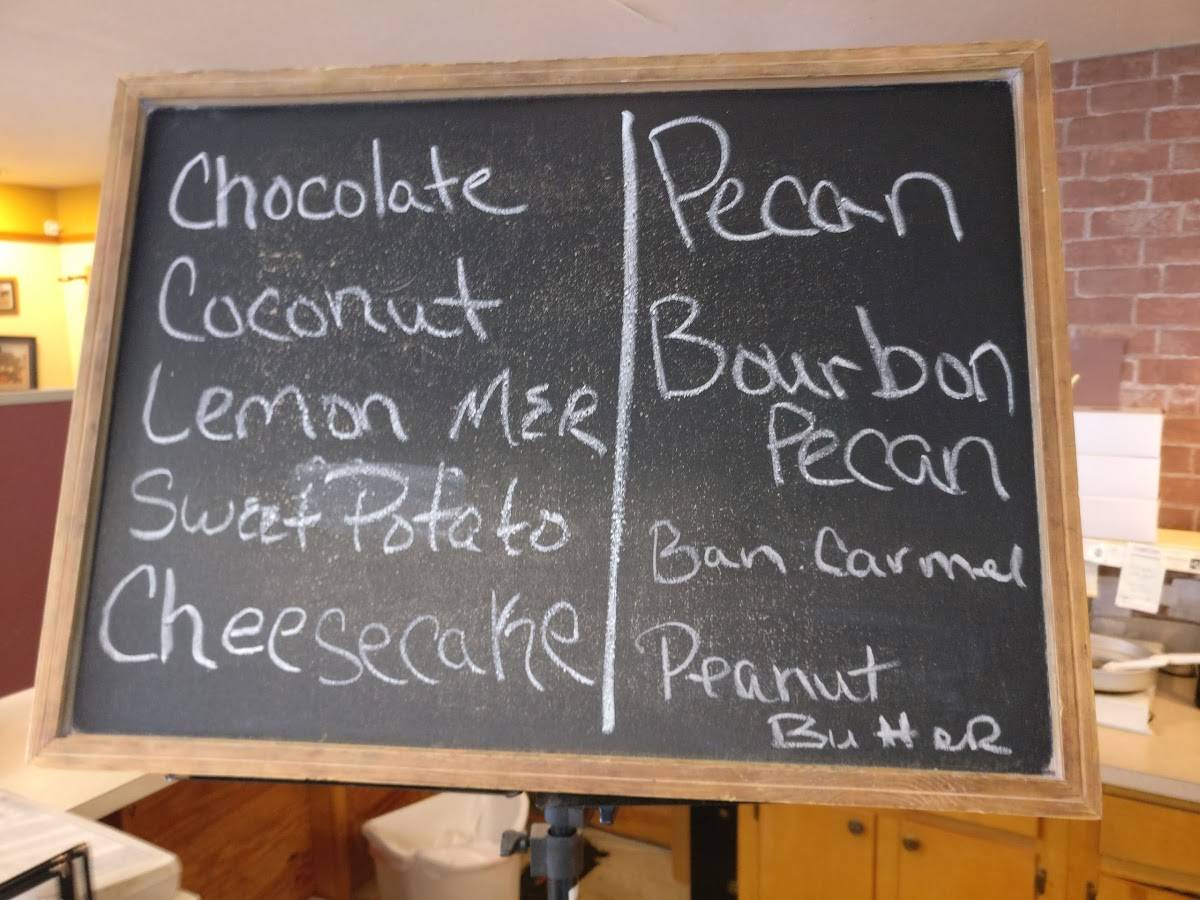 Chocolate
Coconut
Lemon MER
Sweet Potato
Cheesecake
Pecan
Bourbon
Pecan
Ban. Carmel
Peanut
Butter